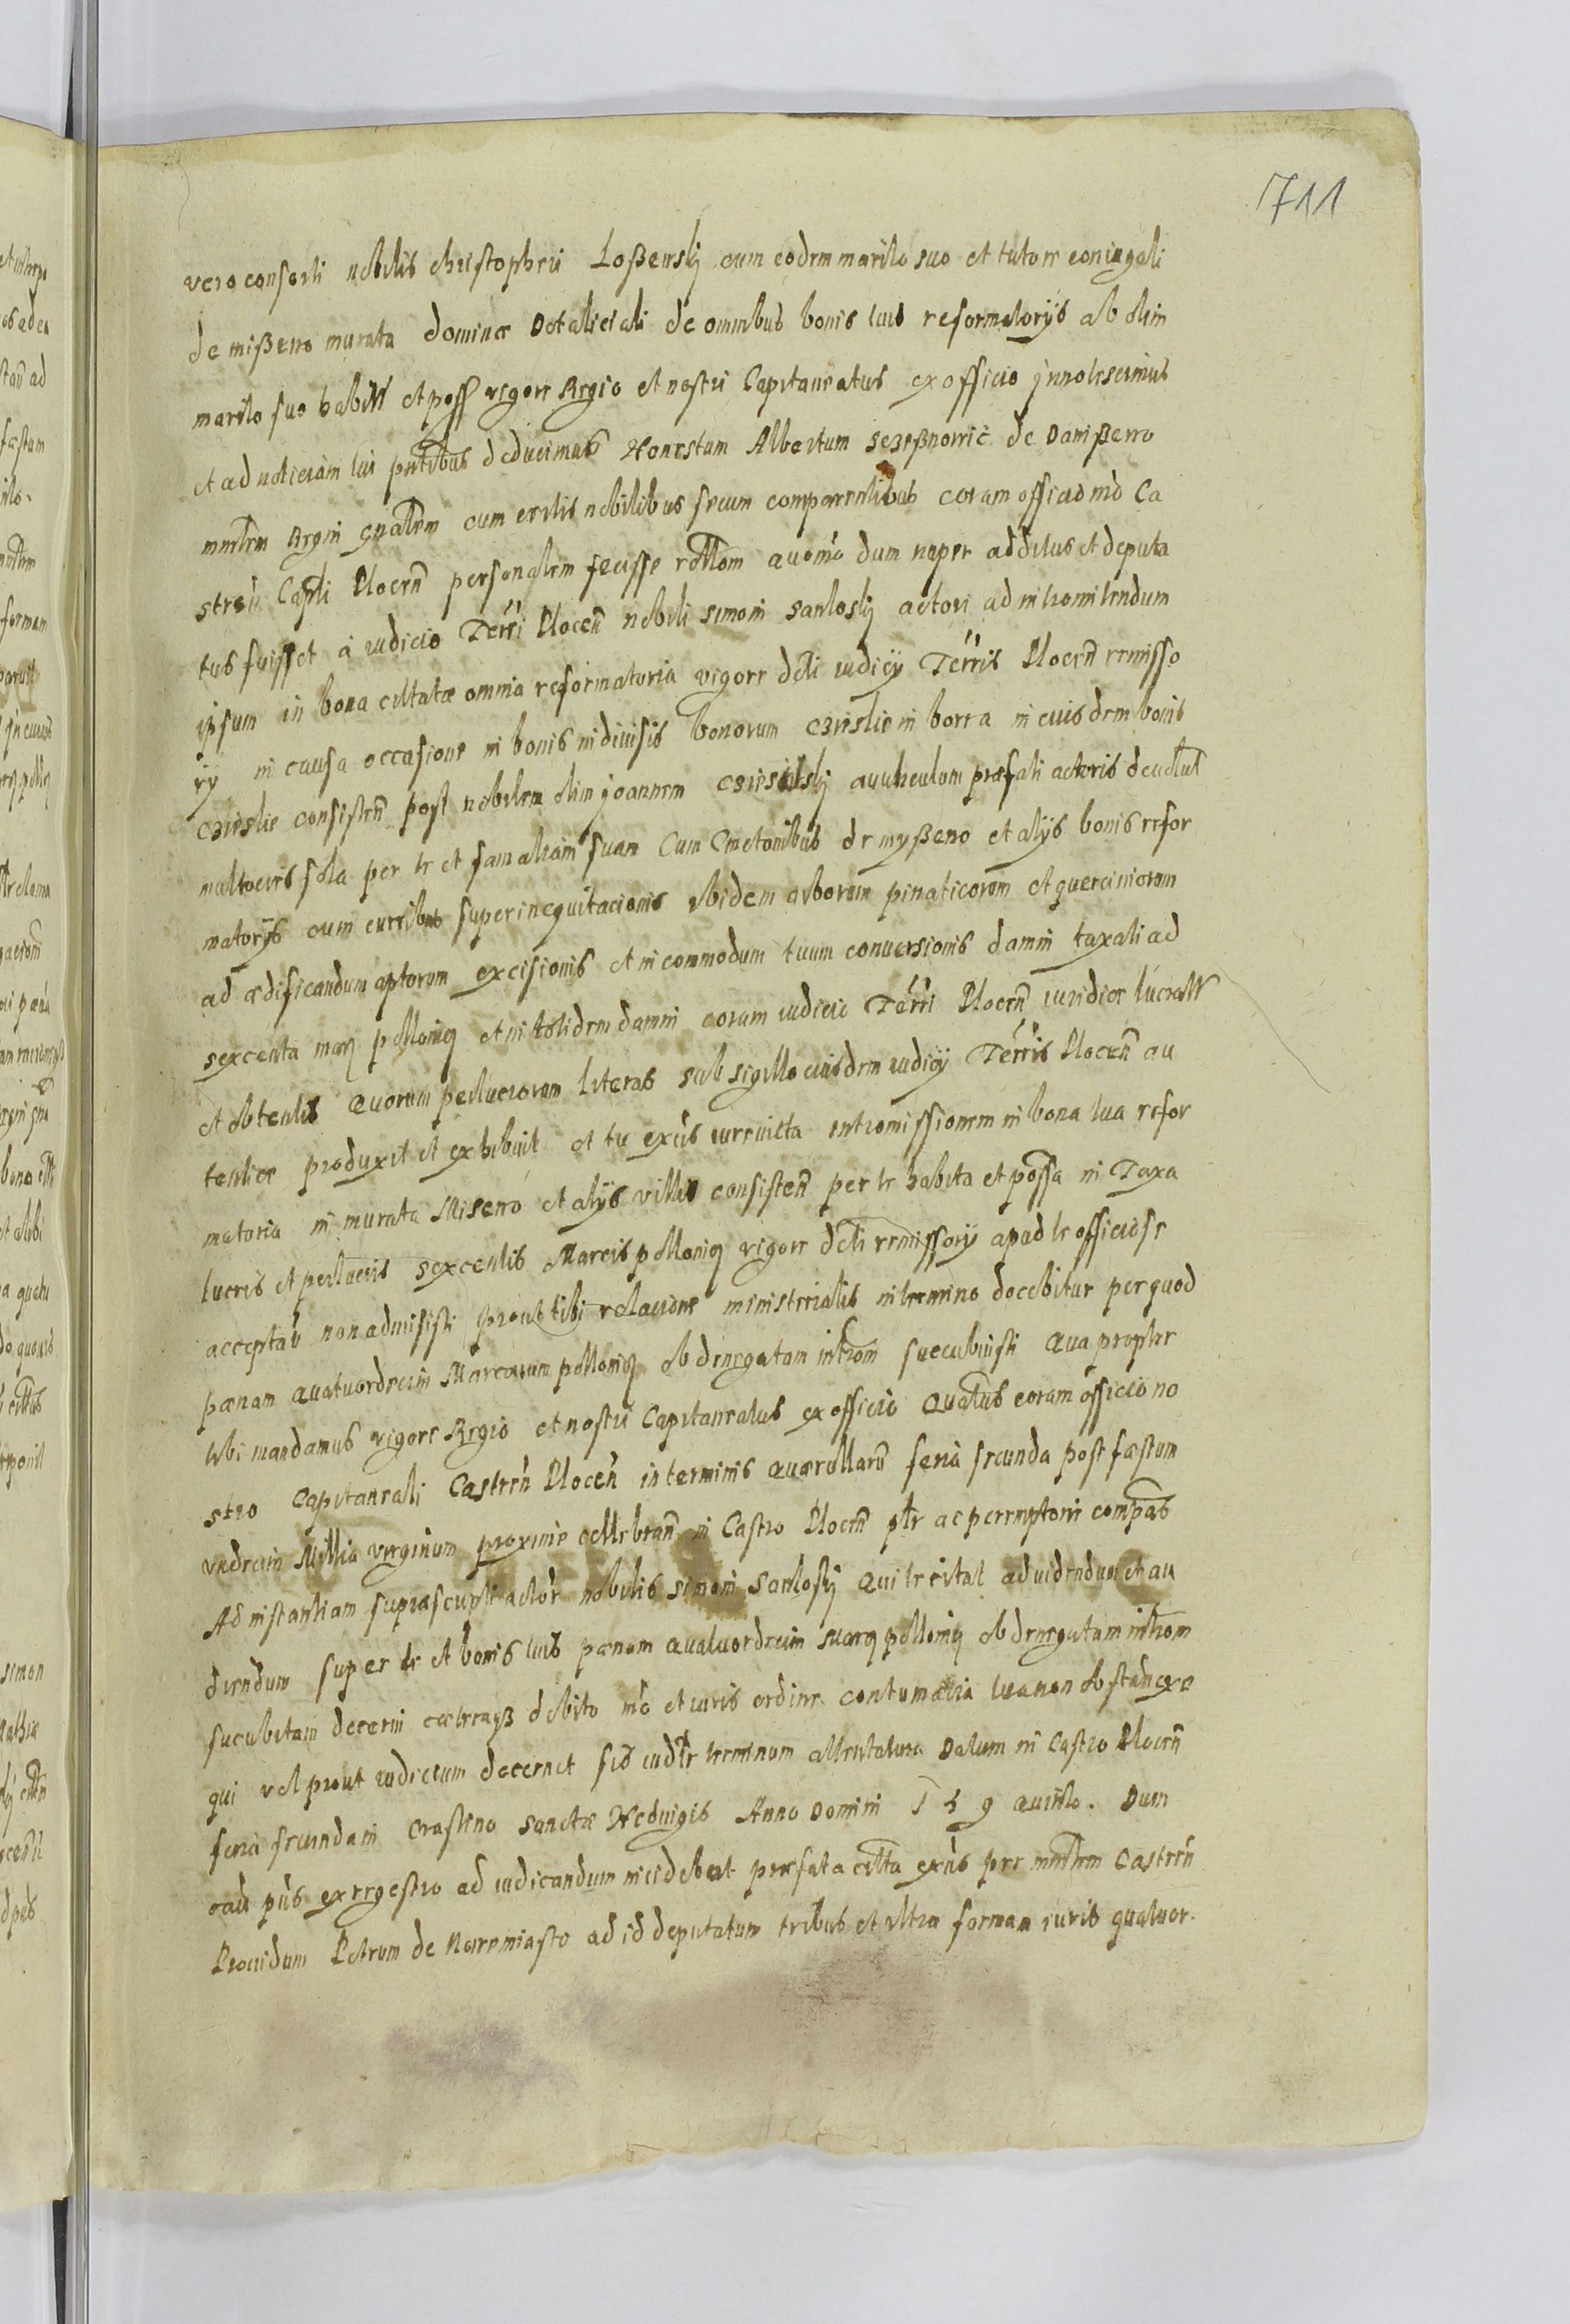 711
vero consorti nobilis christopheri Loßewskÿ cum eodem marito suo et tutore coniugali
de mißewo murata dominæ Dotaliciali de omnibus bonis tuis reformatorÿs ab olim
marito suo habitis et poss vigore Regio et nostri Capitaneatus ex officio jnnotescimus
et ad noticiam tui pntibus deducimus Honestum Albertum de Danißewo
mnrlem Regni gnalem cum certis nobilibus secum comparentibus coram officio nro Ca
stren Capli Plocen personalem fecisse rellom quomo dum nuper additus et deputa
tus fuisset a iudicio Terri Plocen nobili simoni sanloskÿ actori ad intromitendum
ipsum in bona citatæ omnia reformatoria vigore dcti iudicÿ Terris Plocen remisso
rÿ in causa occasione in bonis indiuisis bonorum czieslie in borra in cuisdem bonis
czieslie consisten post nobilem olim joannem czieslskÿ auunculum præfati actoris deuolut
multocies sola per te et familiam suam Cum Cmetonibus de mÿßeno et alÿs bonis refor
matorÿs cum curribus superinequitacionis ibidem arborum pinaticorum et querciniorum
ad ædificandum aptorum excisionis et in commodum tuum conuersionis damni taxati ad
sexcenta marq pollonicq et in totidem damni coram iudicio Terri Plocen iuridice lucratis
et obtentis Quorum perlucrorum literas sub sigillo eiusdem iudicÿ Terris Plocen au
tentice produxit et exhibuit et tu exns iureuicta intromissionem in bona tua refor
matoria in murata Misewo et alÿs villis consisten per te habita et possa in Taxa
lucris et perlucris sexcentis Marcis pollonicq vigore dcti remissorÿ apud te officiose
acceptau non admisisti prout tibi relacione ministerialis in termino docebitur per quod
pænam quatuordecim Marcarum pollonicq ob denegatam introm succubuisti Quapropter
tibi mandamus vigore Regio et nostri Capitaneatus ex officio Quatus coram officio no
stro Capitaneali Castren Plocen in terminis quærellaru feria secunda post fæstum
vndecim Millia virginum proxime cellebran in Castro Plocen ptr ac peremptorie compas
Ad instantiam suprascripti actor nobilis simoni sanloskÿ Qui te citat ad uidendum et au
diendum super te et bonis tuis pænam quatuordecim marq pollonicq ob denegatam introm
sucubitam decerni cæteraqß debito mo et iuris ordine contumatia tua non obstan
qui vel prout iudicium decernet sup iudtr terminum attentatura Datum in Castro Plocen
feria secunda in crastino sanctæ Heduigis Anno Domini 159 quinto. Dum
cau pns ex regestro ad iudicandum incidebat præfata citta exns per mnrlem Castren
Prouidum Petrum de Nowemiasto ad id deputatum tribus et vltra forman iuris quatuor.